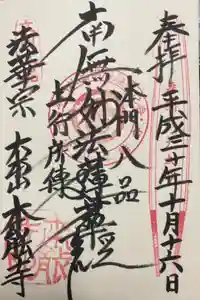 奉拝
平成三十年十月十六日
本門八品
南無妙法蓮華経
上行所傳
法華宗
大本山 本能寺